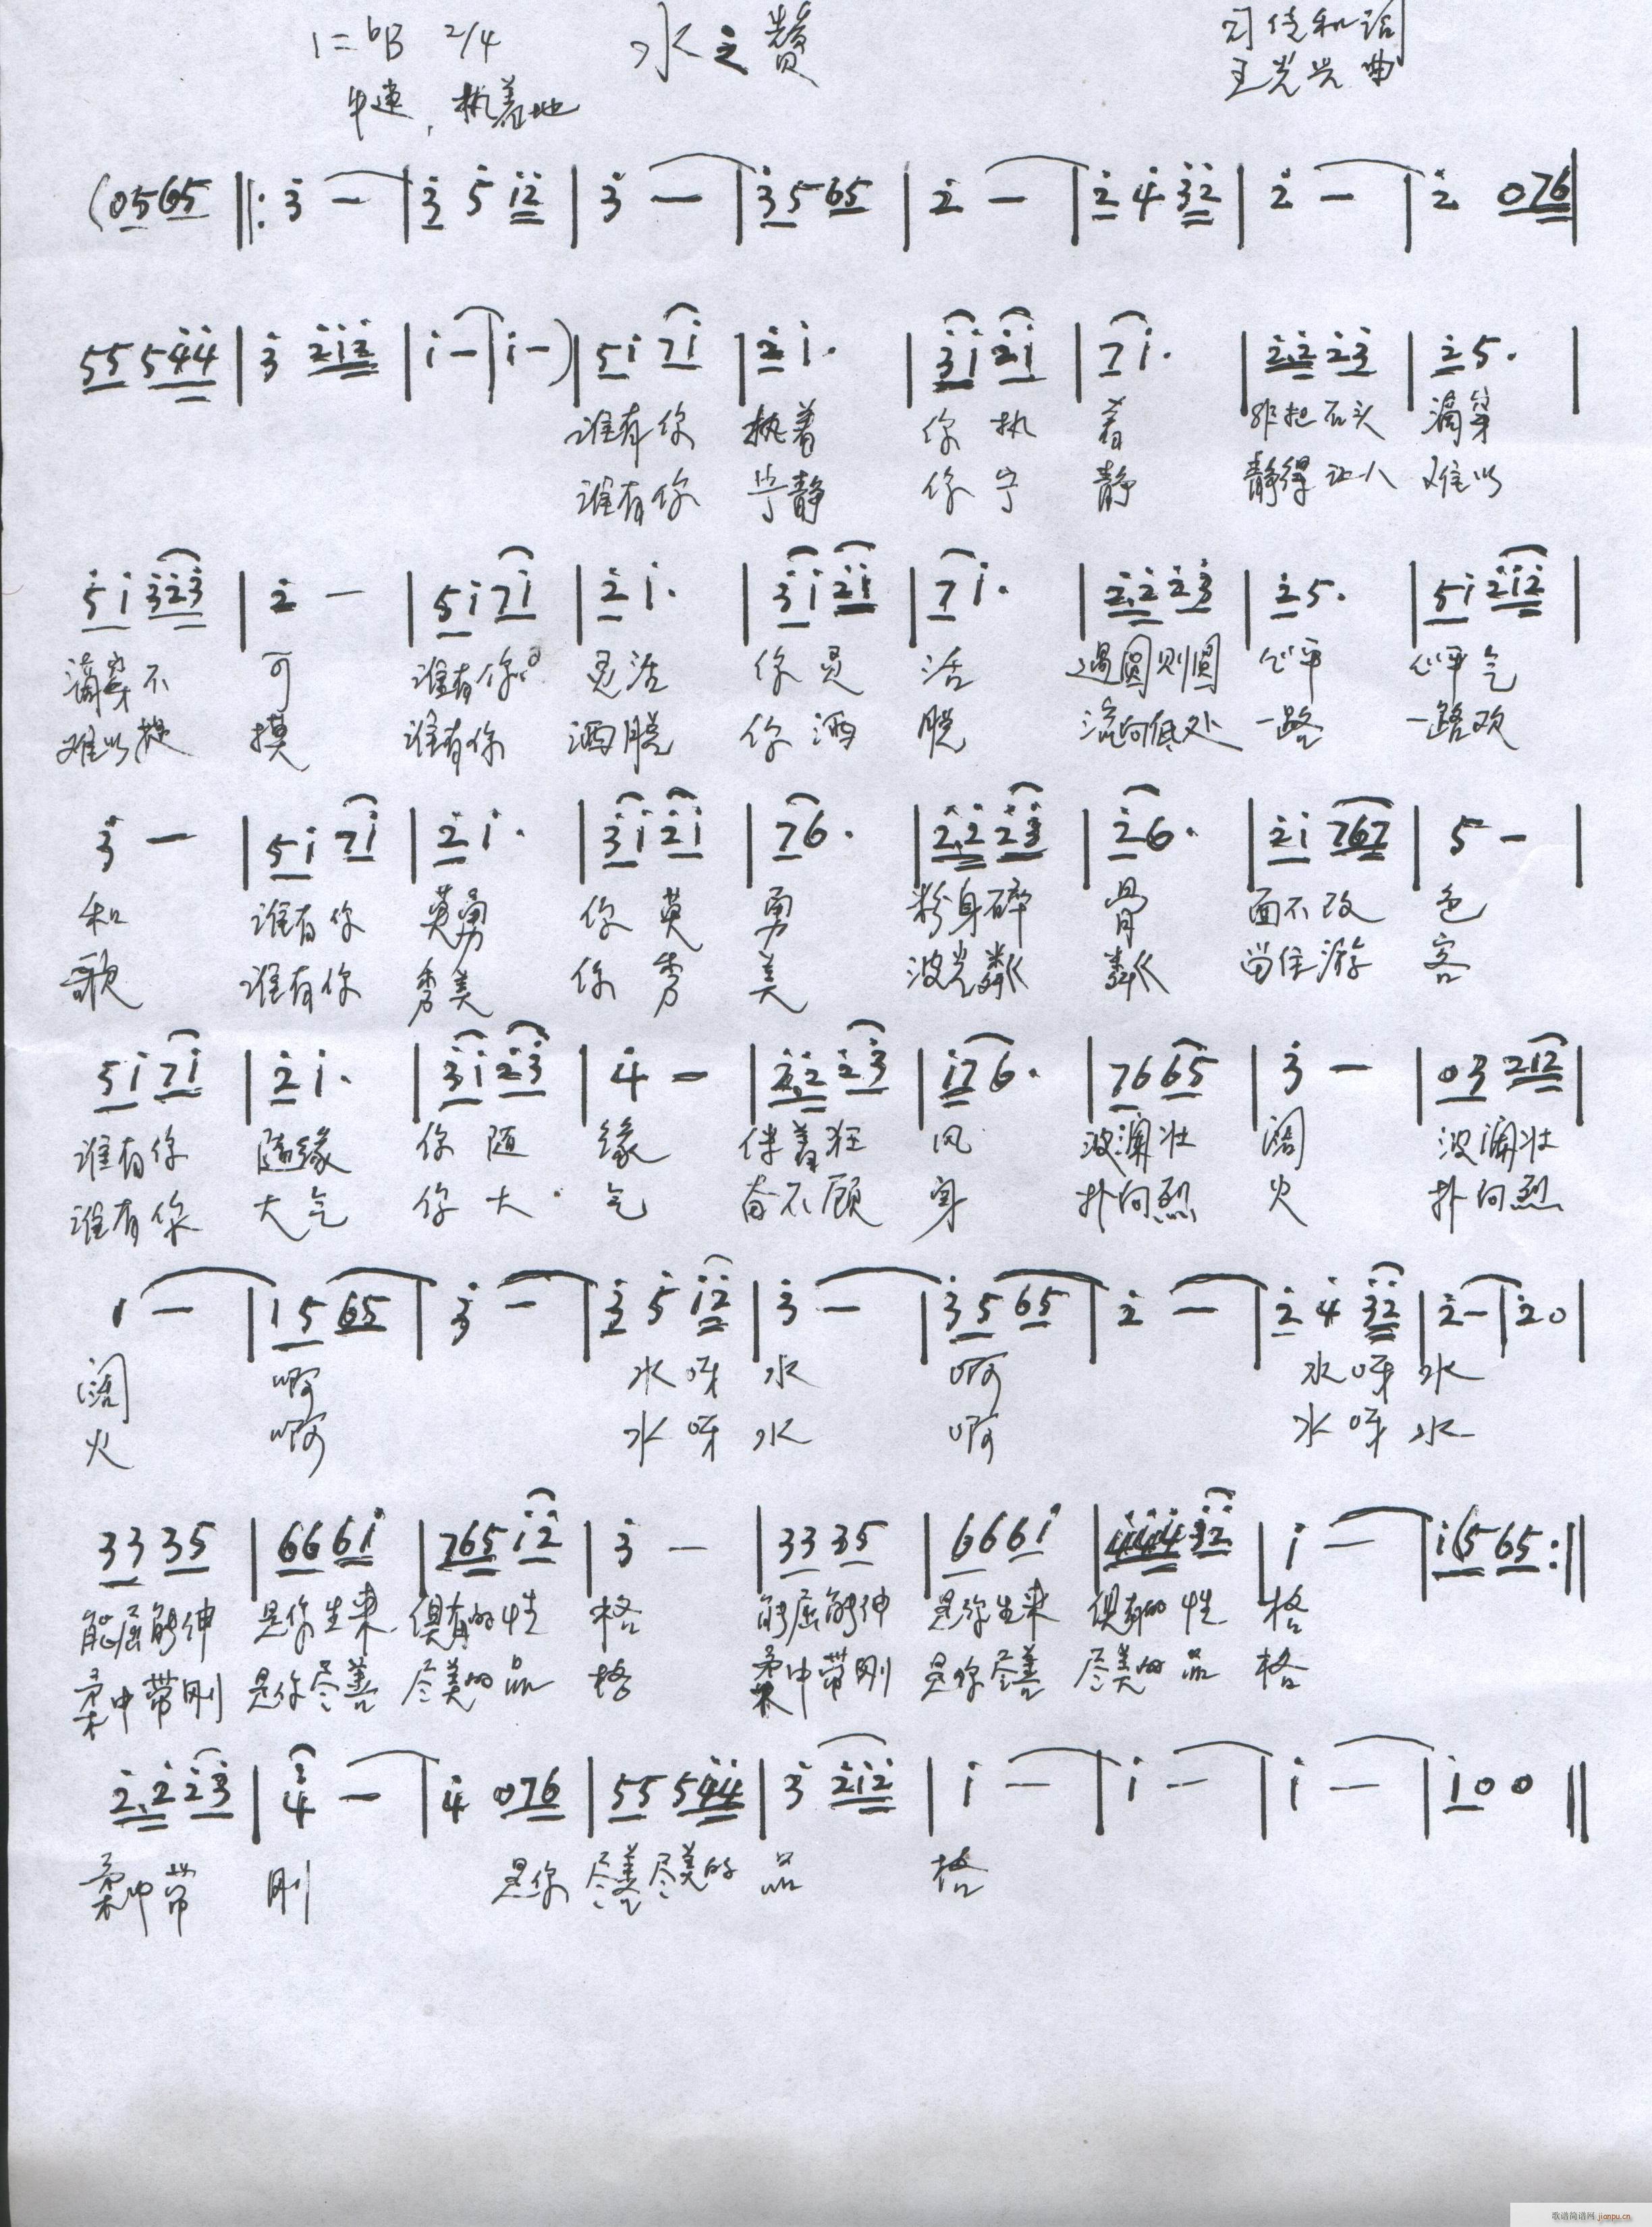 1=♭B 2/4 水之赞 传和词
中速,执着地 王光兴曲
(0565 ‖: 3̇ — | 3̇ 5̇ 1̇2̇ | 3̇ — | 3̇ 5 65 | 2̇ — | 2̇ 4̇ 3̇2̇ | 2̇ — | 2̇ 076 |
55 54̇4̇ | 3̇ 2̇1̇2̇ | 1̇ — | 1̇ — ) | 51̇ 71̇ | 2̇ 1̇. | 3̇1̇ 2̇1̇ | 7 1̇. | 2̇.2̇ 2̇3̇ | 2̇ 5. |
谁有你 执着 你执 着 非把石头 滴穿
谁有你 宁静 你宁 静 静得让人 难以
5̇1̇ 3̇2̇3̇ | 2̇ — | 51̇ 71̇ | 2̇ 1̇. | 3̇1̇ 2̇1̇ | 7 1̇. | 2̇.2̇ 2̇3̇ | 2̇ 5. | 51̇ 2̇1̇2̇ |
滴穿不 可 谁有你 灵活 你灵 活 遇圆则圆 心平 心平气
难以捉 摸 谁有你 洒脱 你洒 脱 流向低处 一路 一路欢
3̇ — | 51̇ 71̇ | 2̇ 1̇. | 3̇1̇ 2̇1̇ | 7 6. | 2̇.2̇ 2̇3̇ | 2̇ 6. | 2̇1̇ 767 | 5 — |
和 谁有你 英勇 你英 勇 粉身碎 骨 面不改 色
歌 谁有你 秀美 你秀 美 波光粼 粼 留住游 客
51̇ 71̇ | 2̇ 1̇. | 3̇1̇ 2̇3̇ | 4̇ — | 2̇.2̇ 2̇3̇ | 1̇7 6. | 76 65 | 3̇ — | 03 21̇2̇ |
谁有你 随缘 你随 缘 伴着狂 风 波澜壮 阔 波澜壮
谁有你 大气 你大 气 奋不顾 身 扑向烈 火 扑向烈
1 — | 15 65 | 3̇ — | 3̇ 5̇ 1̇2̇ | 3̇ — | 3̇5 65 | 2̇ — | 2̇ 4̇ 3̇2̇ | 2̇ — | 2̇ 0 |
阔 啊 水呀 水 啊 水呀 水
火 啊 水呀 水 啊 水呀 水
33 35 | 66 61̇ | 765 1̇2̇ | 3̇ — | 33 35 | 66 61̇ | 4̇4̇4̇ 3̇2̇ | 1̇ — | 1̇(5 65 :‖
能屈能伸 是你生来 俱有的性 格 能屈能伸 是你生来 俱有的性 格
柔中带刚 是你尽善 尽美的品 格 柔中带刚 是你尽善 尽美的品 格
2̇.2̇ 2̇3̇ | 4̇ — | 4̇ 076 | 55 54̇4̇ | 3̇ 2̇1̇2̇ | 1̇ — | 1̇ — | 1̇ — | 1̇ 0 0 ‖
柔中带 刚 是你 尽善尽美的 品 格
歌谱简谱网 jianpu.cn